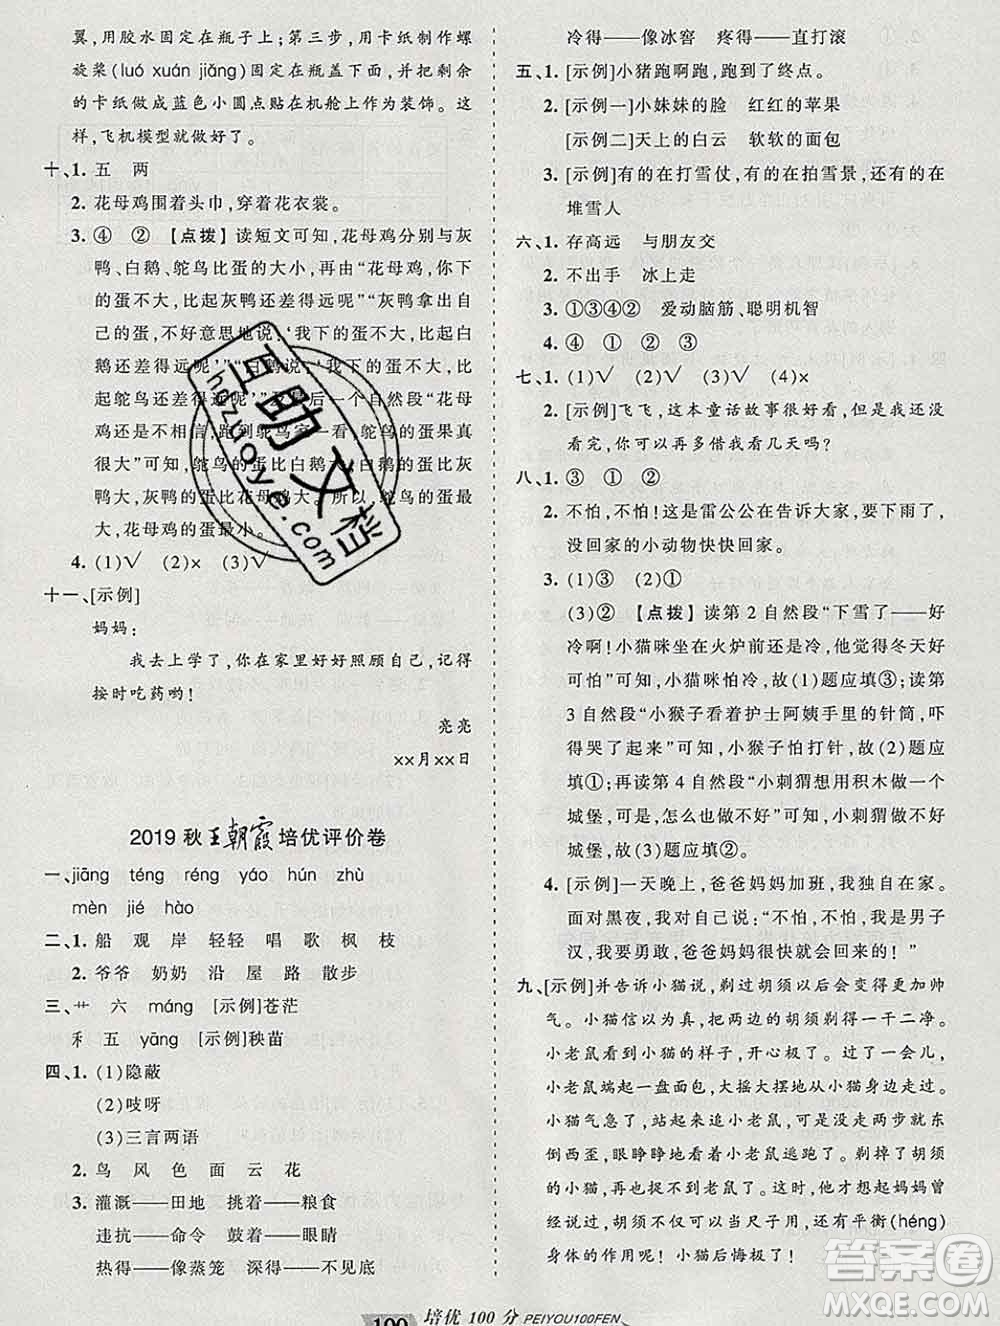 翼,用胶水固定在瓶子上;第三步,用卡纸制作螺
旋桨(luó xuán jiǎng)固定在瓶盖下面,并把剩余
的卡纸做成蓝色小圆点贴在机舱上作为装饰。这
样,飞机模型就做好了。
十、1. 五 两
2. 花母鸡围着头巾,穿着花衣裳。
3. ④ ② 【点拨】读短文可知,花母鸡分别与灰
鸭、白鹅、鸵鸟比蛋的大小,再由“花母鸡说,‘我
下的蛋不大,比起灰鸭还差得远呢’”“灰鸭拿出自
己的蛋,不好意思地说,‘我下的蛋不大,比起白
鹅还差得远呢’”“白鹅说,‘我下的蛋不大,比起
鸵鸟还差得远呢’”及最后一个自然段“花母
鸡还是不相信,跑到鸵鸟家一看,鸵鸟的蛋果然
很大”可知,鸵鸟蛋比白鹅大,
灰鸭蛋比花母鸡大。所以,鸵鸟的蛋最
大,花母鸡的蛋最小。
4. (1)√ (2)× (3)√
十一、[示例]
妈妈:
我去上学了,你在家里好好照顾自己,记得
按时吃药哟!
亮亮
××月××日
2019秋王朝霞培优评价卷
一、jiāng téng réng yáo hún zhù
mèn jié hào
二、1. 船 观 岸 轻轻 唱 歌 枫 枝
2. 爷爷 奶奶 沿 屋 路 散步
三、艹 六 máng [示例]苍茫
禾 五 yāng [示例]秧苗
四、1. (1)隐蔽
(2)吱呀
(3)三言两语
2. 鸟 风 色 面 云 花
3. 灌溉——田地 挑着——粮食
违抗——命令 鼓着——眼睛
热得——像蒸笼 深得——不见底
冷得——像冰窖 疼得——直打滚
五、1. [示例]小猪跑啊跑,跑到了终点。
2. [示例一]小妹妹的脸 红红的苹果
[示例二]天上的白云 软软的面包
3. [示例]有的在打雪仗,有的在拍雪景,还有的在
堆雪人
六、1. 存高远 与朋友交
2. 不出手 冰上走
3. ①③④② 爱动脑筋、聪明机智
4. ④ ① ② ③
七、1. (1)√ (2)√ (3)√ (4)×
2. [示例]飞飞,这本童话故事很好看,但是我还没
看完,你可以再多借我看几天吗?
八、1. ③ ① ②
2. 不怕,不怕!这是雷公公在告诉大家,要下雨了,
没回家的小动物快快回家。
3. (1)③ (2)①
(3)② 【点拨】读第2自然段“下雪了——好
冷啊!小猫咪坐在火炉前还是法抖,他觉得冬天好
可怕”可知,小猫咪怕冷,故(1)题应填③;读第
3自然段“小猴子看着护士阿姨手里的针筒,吓
得哭了起来”可知,小猴子怕打针,故(2)题应
填①;再读第4自然段“小刺猬想用积木做一个
城堡,可是又怕做不好”可知,小刺猬怕做不好
城堡,故(3)题应填②。
4. [示例]一天晚上,爸爸妈妈加班,我独自在家。
面对黑夜,我对自己说:“不怕,不怕,我是男子
汉,我要勇敢,爸爸妈妈很快就会回来的!”
九、[示例]并告诉小猫说,剃过胡须以后会变得更加帅
气。小猫信以为真,把两边的胡须剃得一干二净。
小老鼠看到小猫的样子,开心极了。过了一会儿,
小老鼠拖着一大块面包,大摇大摆地从小猫身边走过。
小猫气急了,站起来就去追小老鼠,可是没走两步就东
倒西歪,眼睁睁地看着小老鼠逃跑了。剃掉了胡须
的小猫,再也抓不到老鼠了。这时,他想起妈妈曾
经说过,胡须不仅可以当尺子用,还有平衡(héng)
身体的作用呢!小猫后悔极了!
100 培优100分 PEIYOU100FEN
互助文档
hdzuoye.com
答案圈
MXQE.COM